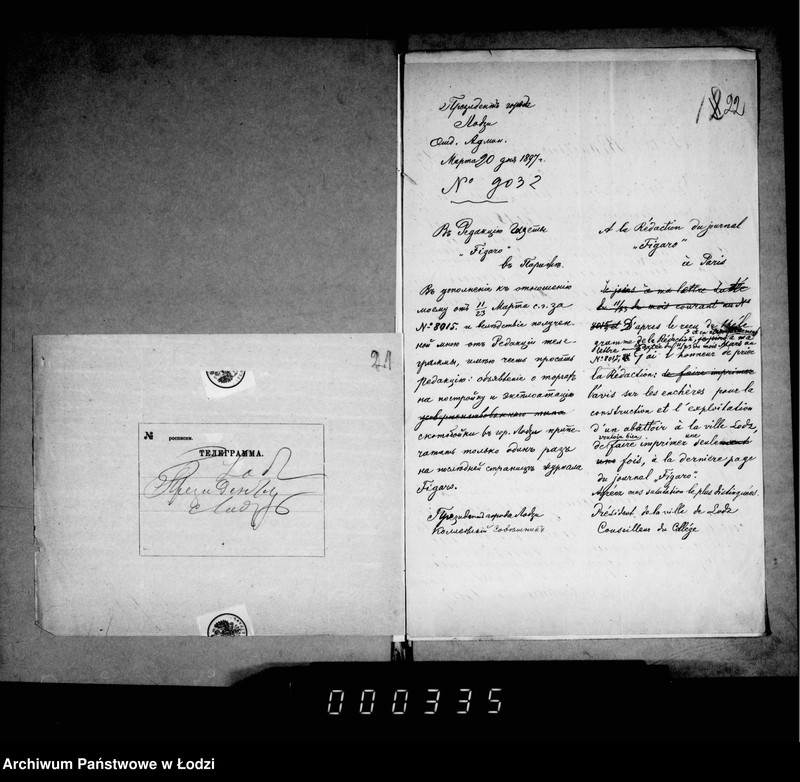 21
№
росписки.
ТЕЛЕГРАММА.
Лодзь
Президенту
г. Лодзь
122
Президентъ города
Лодзи
Отд. Админ.
Марта 20 дня 1897 г.
№ 9032
Въ Редакцію Газеты
"Figaro"
въ Парижѣ.
Въ дополненіе къ отношенію
моему отъ 11/23 Марта с.г. за
№ 8015. и вслѣдствіе получен-
ной мною отъ Редакціи теле-
граммы, имѣю честь просить
редакцію: объявленіе о торгахъ
на постройку и эксплоатацію
усовершенствованнаго типа
скотобойни въ гор. Лодзи припе-
чатать только одинъ разъ
на послѣдней страницѣ журнала
Figaro.
Президентъ города Лодзи
Коллежскій Совѣтникъ
A la Rédaction du journal
"Figaro"
à Paris
Je joins à ma lettre
du 11/23 du mois courant au №
8015 et D'après le reçu de
gramme de la Rédaction,
lettre du 11/23 du mois Mars au
№ 8015, j'ai l'honneur de prier
la Rédaction: de faire imprimer
l'avis sur les enchères pour la
construction et l'exploitation
d'un abattoir à la ville Lodz,
vouloir bien une
de faire imprimer seulement
une fois, à la dernière page
du journal "Figaro".
Agréez mes salutation le plus distinguées.
Président de la ville de Lodz
Conseilleur du Collége
000335
Archiwum Państwowe w Łodzi